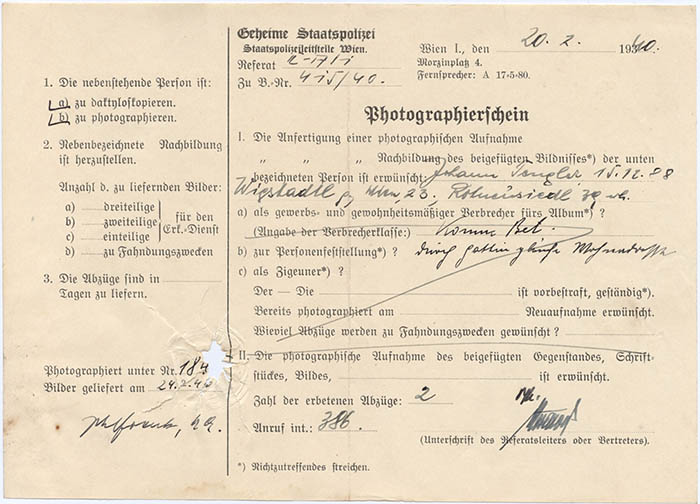 1. Die nebenstehende Person ist:
a) zu daktyloskopieren.
b) zu photographieren.
2. Nebenbezeichnete Nachbildung
ist herzustellen.
Anzahl d. zu liefernden Bilder:
a) dreiteilige
b) zweiteilige
c) einteilige
für den
Erk.-Dienst
d) zu Fahndungszwecken
3. Die Abzüge sind in
Tagen zu liefern.
Photographiert unter Nr. 184
Bilder geliefert am 24.2.40
Geheime Staatspolizei
Staatspolizeileitstelle Wien.
Referat
Zu B.-Nr. 415/40.
Wien I., den 20. 2. 1940.
Morzinplatz 4.
Fernsprecher: A 17-5-80.
Photographierschein
I. Die Anfertigung einer photographischen Aufnahme
„ „ „ Nachbildung des beigefügten Bildnisses*) der unten
bezeichneten Person ist erwünscht: Johann 15.12.88
Wigstadtl 23.
a) als gewerbs- und gewohnheitsmäßiger Verbrecher fürs Album*) ?
(Angabe der Verbrecherklasse:) Komm. Bet.
b) zur Personenfeststellung*) ? durch
c) als Zigeuner*) ?
Der — Die ist vorbestraft, geständig*).
Bereits photographiert am Neuaufnahme erwünscht.
Wieviel Abzüge werden zu Fahndungszwecken gewünscht ?
II. Die photographische Aufnahme des beigefügten Gegenstandes, Schrift-
stückes, Bildes, ist erwünscht.
Zahl der erbetenen Abzüge: 2
Anruf int.: 386
(Unterschrift des Referatsleiters oder Vertreters).
*) Nichtzutreffendes streichen.